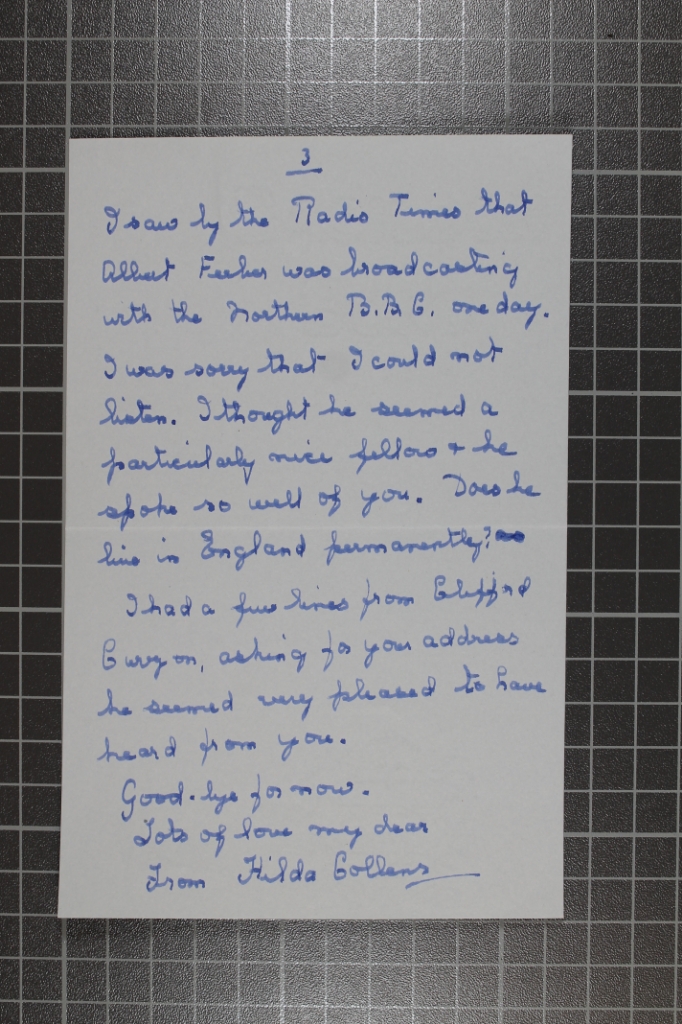 3
I saw by the Radio Times that
Albert Ferber was broadcasting
with the Northern B.B.C. one day.
I was sorry that I could not
listen. I thought he seemed a
particularly nice fellow & he
spoke so well of you. Does he
live in England permanently?
I had a few lines from Clifford
Curzon, asking for your address
he seemed very pleased to have
heard from you.
Good-bye for now.
Lots of love my dear
From Hilda Collens